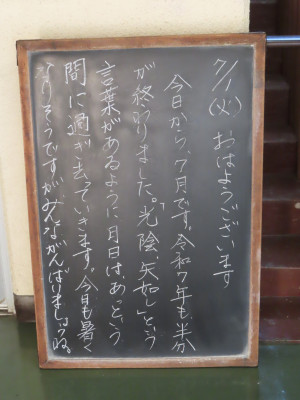 7/1(火)おはようございます
今日から、7月です。令和7年も、半分
が終わりました。「光陰、矢如し」という
言葉があるように、月日は、あっという
間に過ぎ去っていきます。今日も暑く
なりそうですが、みんながんばりましょうね。